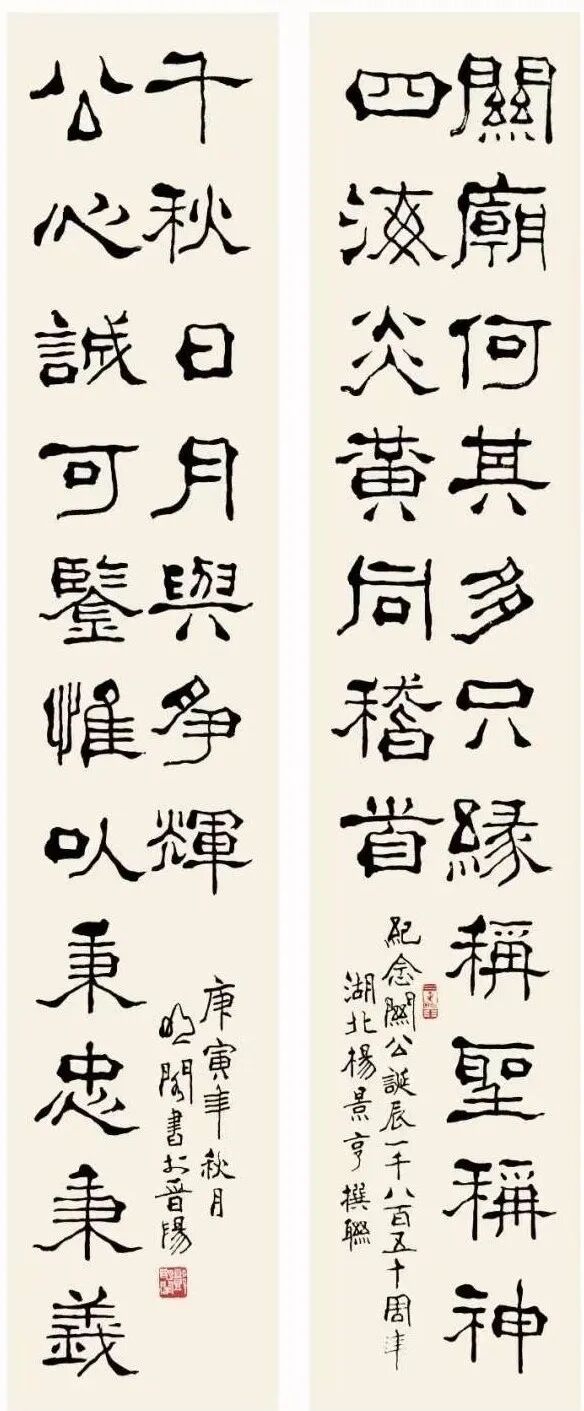 關廟何其多只緣稱聖稱神
四海炎黃同稽首
紀念關公誕辰一千八百五十周年
湖北楊景亨撰聯
公心誠可鑒惟以秉忠秉義
千秋日月與爭輝
庚寅年秋月
明閣書於晉陽